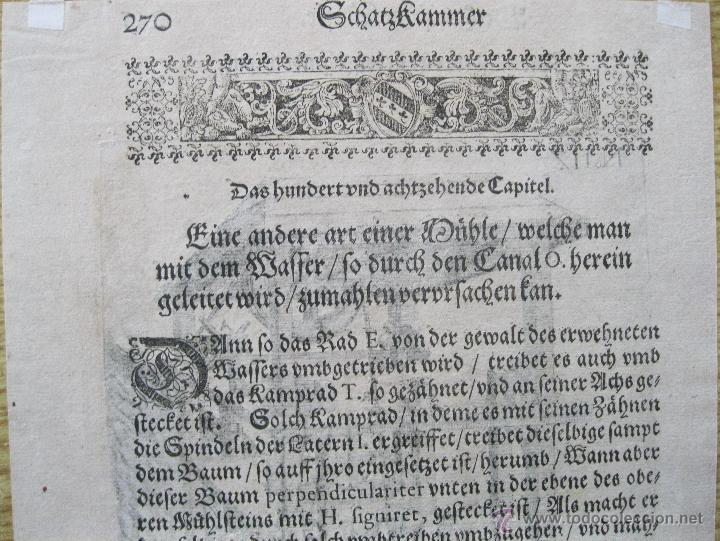 270
SchatzKammer
Das hundert vnd achtzehende Capitel.
Eine andere art einer Mühle/ welche man
mit dem Wasser/ so durch den Canal O. herein
geleitet wird/ zumahlen vervrsachen kan.
DAnn so das Rad E. von der gewalt des erwehneten
Wassers vmbgetrieben wird / treibet es auch vmb
das Kamprad T. so gezähnet/ vnd an seiner Achs ge-
stecket ist. Solch Kamprad/ in deme es mit seinen Zähnen
die Spindeln der Latern I. ergreiffet/ treibet dieselbige sampt
dem Baum/ so auff jhro eingesetzet ist/ herumb/ Wann aber
dieser Baum perpendiculariter vnten in der ebene des obe-
ren Mühlsteins mit H. figuiret, gestecket ist/ Als macht er
vmbtreiben vmbzugehen/ vnd
todocoleccion.net
www.todocoleccion.net